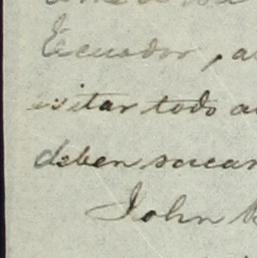 Ecuador, a
evitar todo a
deben sacar
John